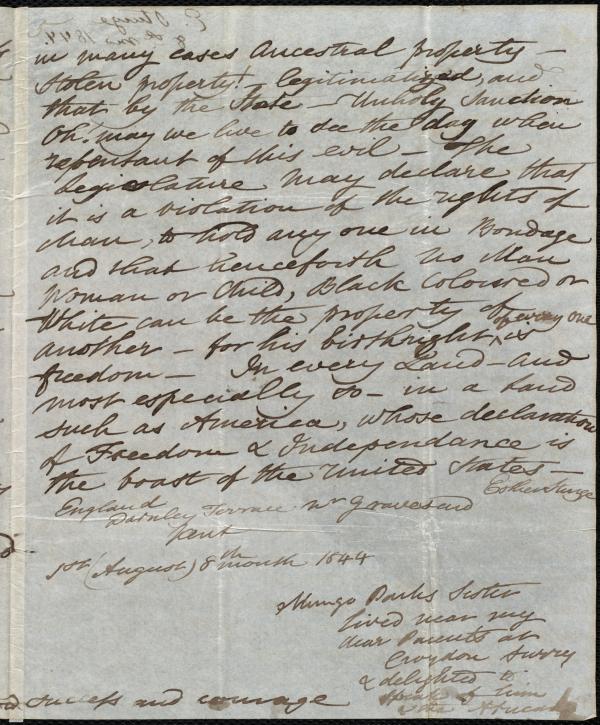 E Sturge
8 Mo 1844.
in many cases Ancestral property —
Stolen property! — legitimatized, and
that by the State — Unholy Sanction
Oh! may we live to see the day when
repentant of this evil — The
Legislature may declare that
it is a violation of the rights of
Man, to hold any one in Bondage
and that henceforth No Man
Woman or Child, Black Coloured or
White can be the property of
another — for his birthright, is
of every one
freedom — In every Land — and
most especially so — in a Land
such as America, whose declaration
of Freedom & Independance is
the boast of the United States —
Esther Sturge
England
Darnley Terrace nr Gravesend
Kent
1st (August) 8th month 1844
Mungo Parks Sister
lived near my
dear Parents at
Croydon Surry
& delighted to
speak of him
success and courage